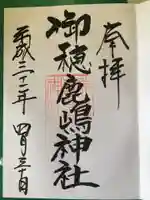 奉拝
御穂鹿嶋神社
平成二十二年 四月三十日